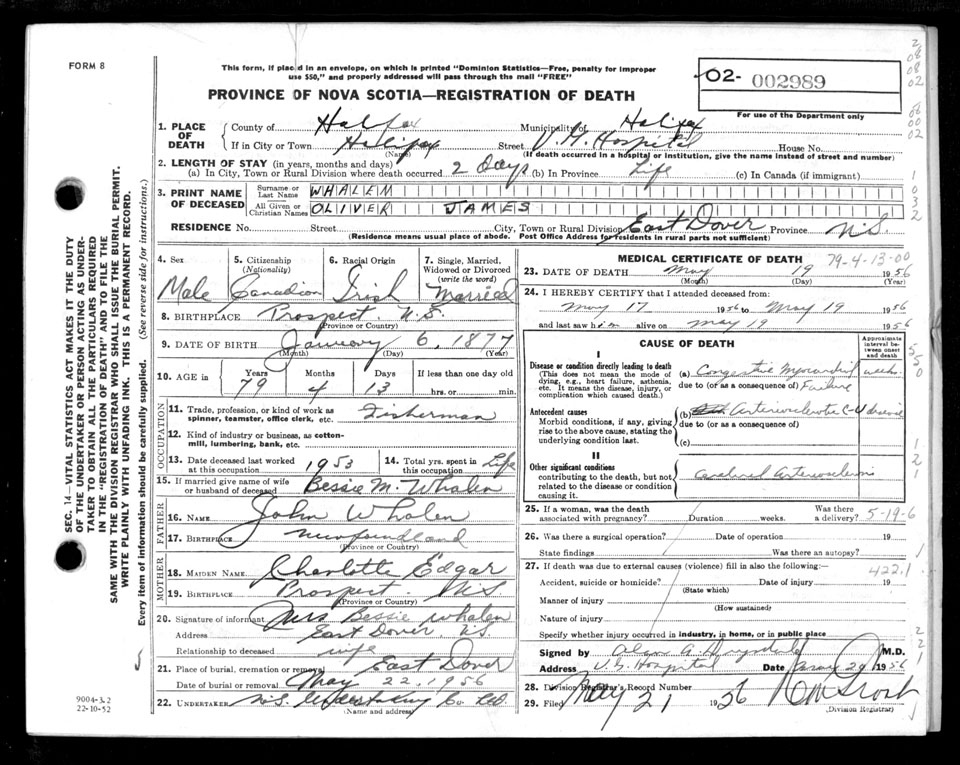 FORM 8
This form, if placed in an envelope, on which is printed "Dominion Statistics—Free, penalty for improper
use $50," and properly addressed will pass through the mail "FREE"
02- 002989
For use of the Department only
PROVINCE OF NOVA SCOTIA—REGISTRATION OF DEATH
1. PLACE OF DEATH
County of Halifax Municipality of Halifax
If in City or Town Halifax Street V. G. Hospital House No.
(Name) (If death occurred in a hospital or institution, give the name instead of street and number)
2. LENGTH OF STAY (in years, months and days)
(a) In City, Town or Rural Division where death occurred 2 Days (b) In Province Life (c) In Canada (if immigrant)
3. PRINT NAME OF DECEASED
Surname or Last Name WHALEN
All Given or Christian Names OLIVER JAMES
RESIDENCE No. Street City, Town or Rural Division East Dover Province N.S.
(Residence means usual place of abode. Post Office Address for residents in rural parts not sufficient)
4. Sex Male
5. Citizenship (Nationality) Canadian
6. Racial Origin Irish
7. Single, Married, Widowed or Divorced (write the word) Married
8. BIRTHPLACE Prospect N.S.
(Province or Country)
9. DATE OF BIRTH January 6, 1877
(Month) (Day) (Year)
10. AGE in Years Months Days If less than one day old
79 4 13 hrs. or min.
OCCUPATION
11. Trade, profession, or kind of work as spinner, teamster, office clerk, etc. Fisherman
12. Kind of industry or business, as cotton-mill, lumbering, bank, etc.
13. Date deceased last worked at this occupation 1953
14. Total yrs. spent in this occupation Life
15. If married give name of wife or husband of deceased Bessie M. Whalen
FATHER
16. NAME John Whalen
17. BIRTHPLACE Newfoundland
(Province or Country)
MOTHER
18. MAIDEN NAME Charlotte Edgar
19. BIRTHPLACE Prospect N.S.
(Province or Country)
20. Signature of informant Mrs Bessie Whalen
Address East Dover, N.S.
Relationship to deceased wife
21. Place of burial, cremation or removal East Dover
Date of burial or removal May 22, 1956
22. UNDERTAKER N.S. Undertaking Co. Ltd.
(Name and address)
MEDICAL CERTIFICATE OF DEATH
79-4-13-00
23. DATE OF DEATH May 19 1956
(Month) (Day) (Year)
24. I HEREBY CERTIFY that I attended deceased from
May 17 1956 to May 19 1956
and last saw him alive on May 19 1956
CAUSE OF DEATH
Approximate interval between onset and death
I
Disease or condition directly leading to death
(This does not mean the mode of dying, e.g., heart failure, asthenia, etc. It means the disease, injury, or complication which caused death.)
(a) Congestive Myocardial weeks
due to (or as a consequence of) Failure
Antecedent causes
Morbid conditions, if any, giving rise to the above cause, stating the underlying condition last.
(b) Arteriosclerotic C-V disease
due to (or as a consequence of)
(c)
II
Other significant conditions
contributing to the death, but not related to the disease or condition causing it.
Cerebral Arteriosclerosis
25. If a woman, was the death associated with pregnancy? Duration weeks. Was there a delivery? 5-19-6
26. Was there a surgical operation? Date of operation 19
State findings Was there an autopsy?
27. If death was due to external causes (violence) fill in also the following:— 422.1
Accident, suicide or homicide? Date of injury 19
(State which)
Manner of injury
(How sustained)
Nature of injury
Specify whether injury occurred in industry, in home, or in public place
Signed by Alan A. Drysdale M.D.
Address V.G. Hospital Date May 20 1956
28. Division Registrar's Record Number
29. Filed May 21 1956
(Division Registrar)
SEC. 14—VITAL STATISTICS ACT MAKES IT THE DUTY
OF THE UNDERTAKER OR PERSON ACTING AS UNDER-
TAKER TO OBTAIN ALL THE PARTICULARS REQUIRED
IN THE "REGISTRATION OF DEATH" AND TO FILE THE
SAME WITH THE DIVISION REGISTRAR WHO SHALL ISSUE THE BURIAL PERMIT.
WRITE PLAINLY WITH UNFADING INK. THIS IS A PERMANENT RECORD.
Every item of information should be carefully supplied. (See reverse side for instructions.)
9004-3.2
22-10-52